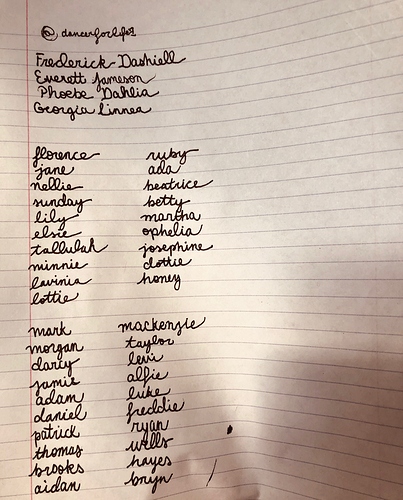 @dancerforlife2
Frederick Dashiell
Everett Jameson
Phoebe Dahlia
Georgia Linnea
florence
jane
nellie
sunday
lily
elsie
tallulah
minnie
lavinia
lottie
ruby
ada
beatrice
betty
martha
ophelia
josephine
dottie
honey
mark
morgan
darcy
jamie
adam
daniel
patrick
thomas
brooks
aidan
mackenzie
taylor
levi
alfie
luke
freddie
ryan
wells
hayes
bryn